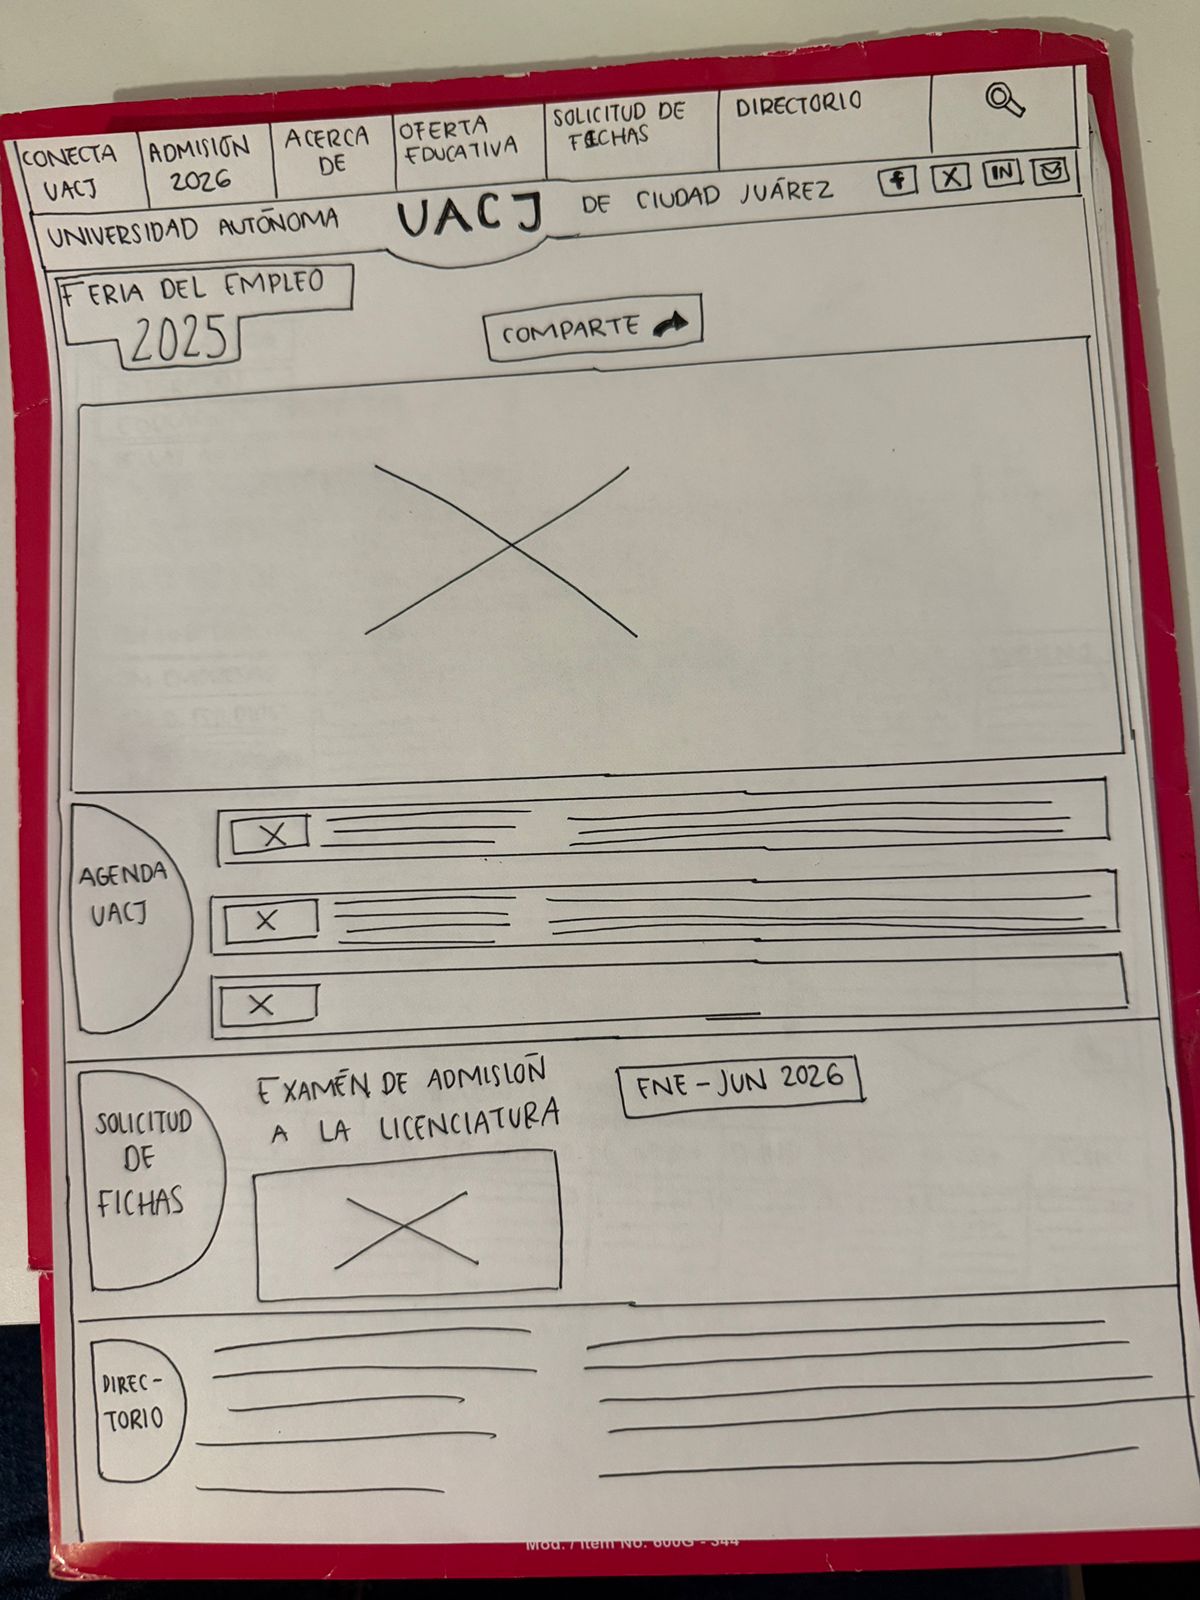 CONECTA
UACJ
ADMISIÓN
2026
ACERCA
DE
OFERTA
EDUCATIVA
SOLICITUD DE
FICHAS
DIRECTORIO
UNIVERSIDAD AUTÓNOMA
UACJ
DE CIUDAD JUÁREZ
f
X
IN
FERIA DEL EMPLEO
2025
COMPARTE
AGENDA
UACJ
SOLICITUD
DE
FICHAS
EXAMÉN DE ADMISIÓN
A LA LICENCIATURA
ENE-JUN 2026
DIREC-
TORIO
Mod. / Item No. 600G - 344